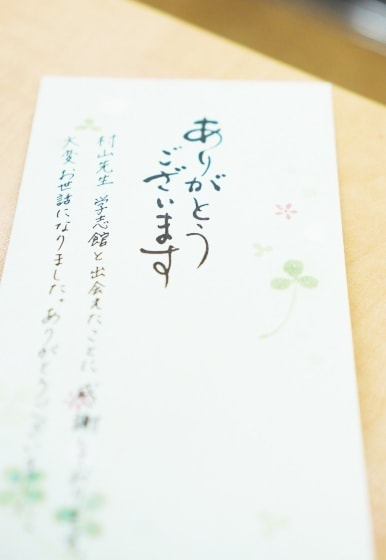 ありがとう
ございます
村山先生 学志館と出会えたことに 感謝しております
大変お世話になりました。ありがとうございました